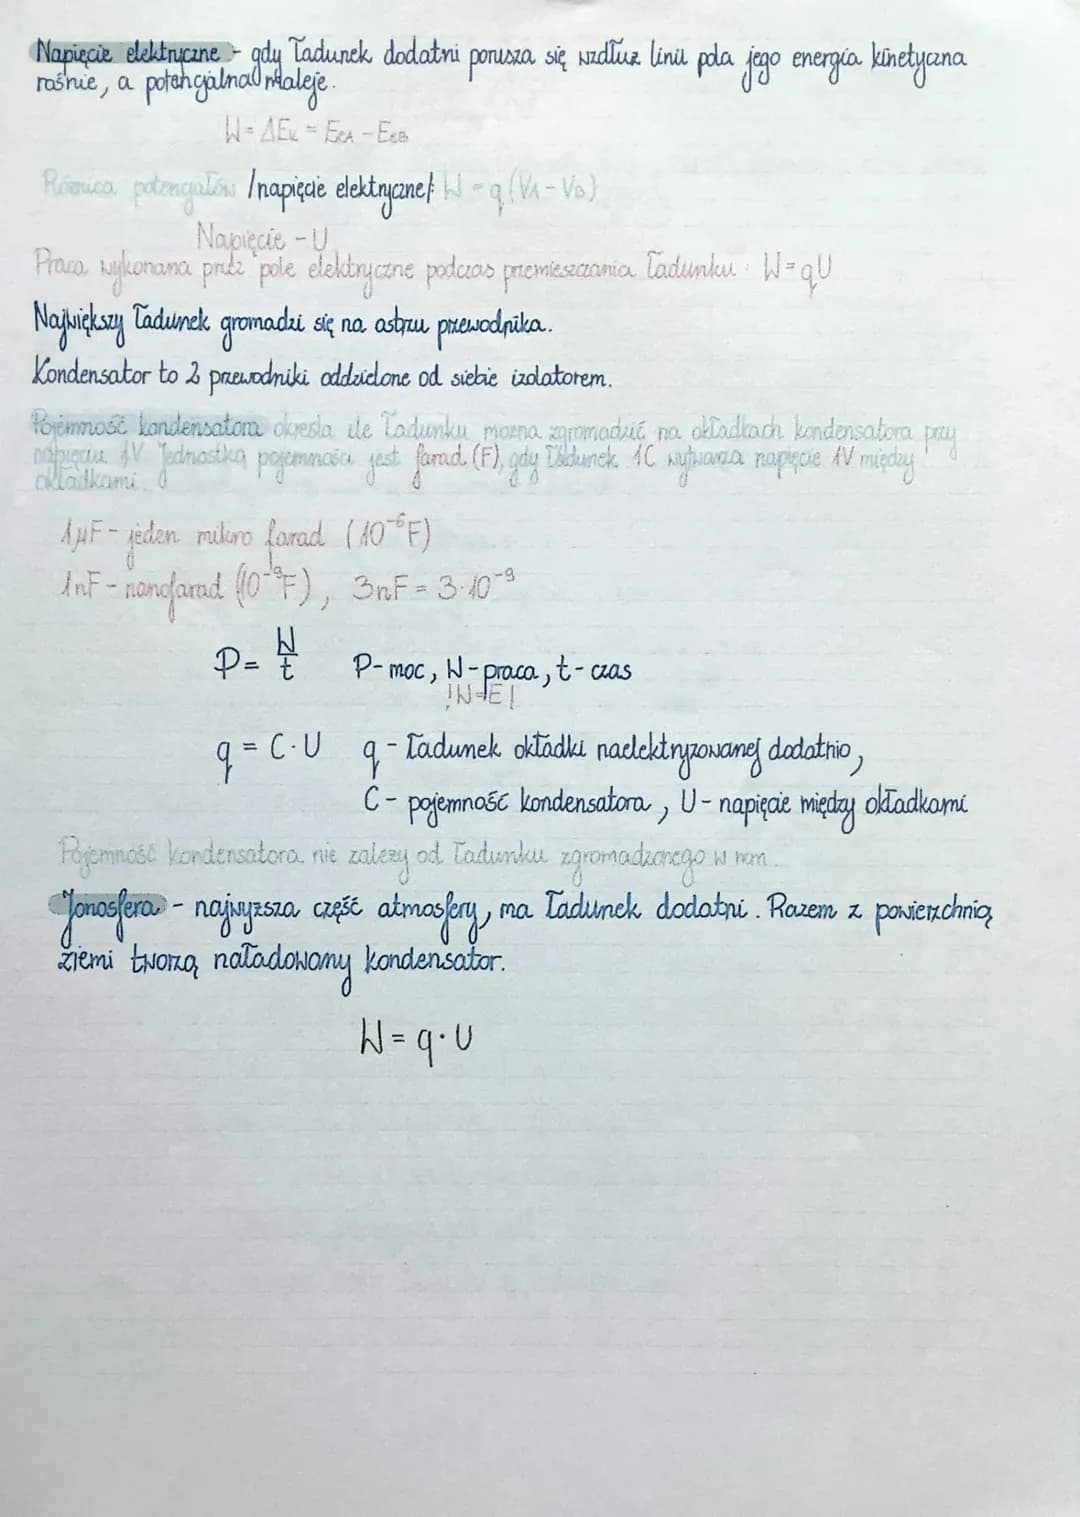 Napięcie elektryczne - gdy ładunek dodatni porusza się wzdłuż linii pola jego energia kinetyczna
rośnie, a potencjalna maleje.
W = ΔEk = EeA - EeB
Różnica potencjałów /napięcie elektryczne/: W = q(VA - VB)
Napięcie - U
Praca wykonana przez pole elektryczne podczas przemieszczania ładunku: W = qU
Największy ładunek gromadzi się na ostrzu przewodnika.
Kondensator to 2 przewodniki oddzielone od siebie izolatorem.
Pojemność kondensatora określa ile ładunku można zgromadzić na okładkach kondensatora przy
napięciu 1V Jednostką pojemności jest farad (F), gdy ładunek 1C wytwarza napięcie 1V między
okładkami.
1μF - jeden mikro farad (10⁻⁶F)
1nF - nanofarad (10⁻⁹F), 3nF = 3·10⁻⁹
P = W/t P - moc, W - praca, t - czas
!W=E!
q = C·U q - ładunek okładki naelektryzowanej dodatnio,
C - pojemność kondensatora, U - napięcie między okładkami
Pojemność kondensatora nie zależy od ładunku zgromadzonego w nim.
Jonosfera - najwyższa część atmosfery, ma ładunek dodatni. Razem z powierzchnią
ziemi tworzą naładowany kondensator.
W = q·U